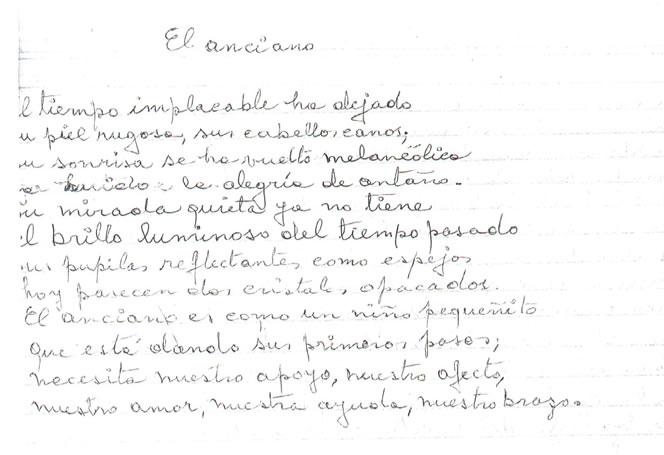 El anciano
l tiempo implacable ha dejado
u piel rugosa, sus cabellos canos;
u sonrisa se ha vuelto melancólica
la alegría de antaño.
u mirada quieta ya no tiene
l brillo luminoso del tiempo pasado
us pupilas reflectantes como espejos
hoy parecen dos cristales opacados.
El anciano es como un niño pequeñito
que está dando sus primeros pasos;
necesita nuestro apoyo, nuestro afecto,
nuestro amor, nuestra ayuda, nuestro brazo.